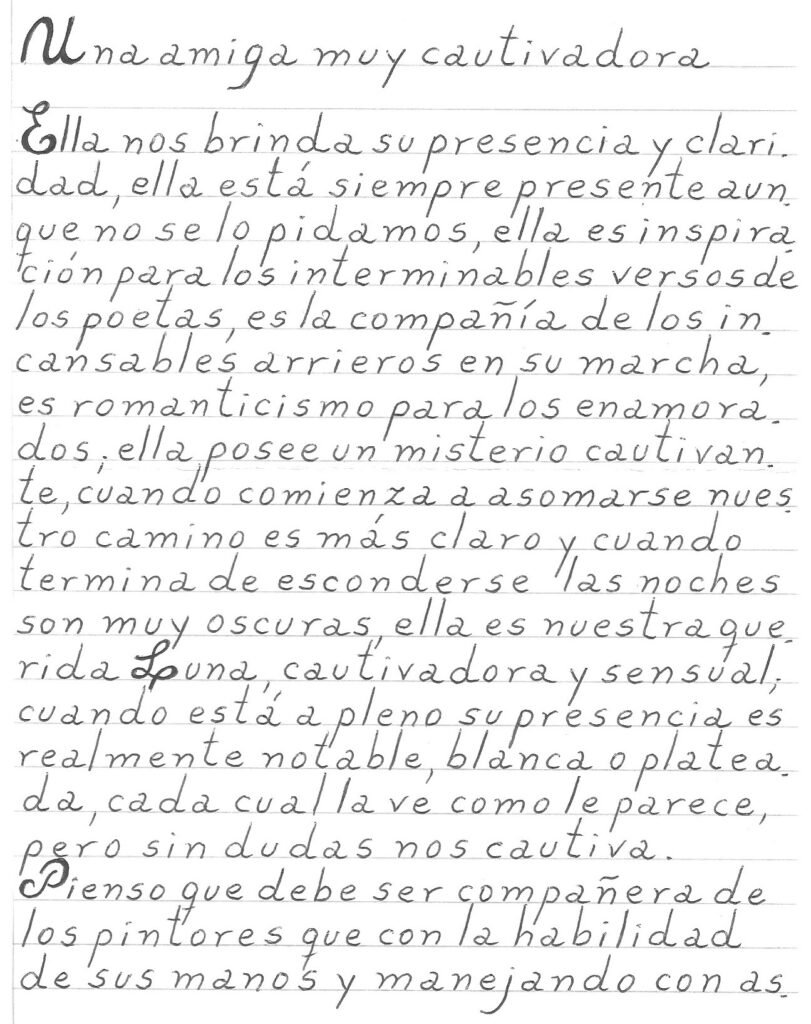 Una amiga muy cautivadora
Ella nos brinda su presencia y clari-
dad, ella está siempre presente aun-
que no se lo pidamos, ella es inspira-
ción para los interminables versos de
los poetas, es la compañía de los in-
cansables arrieros en su marcha,
es romanticismo para los enamora-
dos; ella posee un misterio cautivan-
te, cuando comienza a asomarse nues-
tro camino es más claro y cuando
termina de esconderse las noches
son muy oscuras, ella es nuestra que-
rida Luna, cautivadora y sensual;
cuando está a pleno su presencia es
realmente notable, blanca o platea-
da, cada cual la ve como le parece,
pero sin dudas nos cautiva.
Pienso que debe ser compañera de
los pintores que con la habilidad
de sus manos y manejando con as-